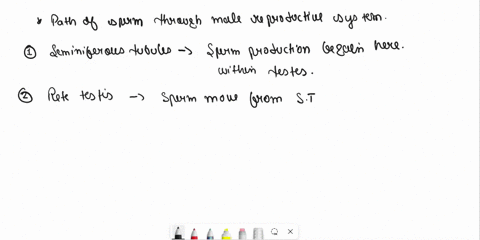 * Path of sperm through male reproductive system.
① Seminiferous tubules → Sperm production begain here.
within testes.
② Rete testis → Sperm move from S.T